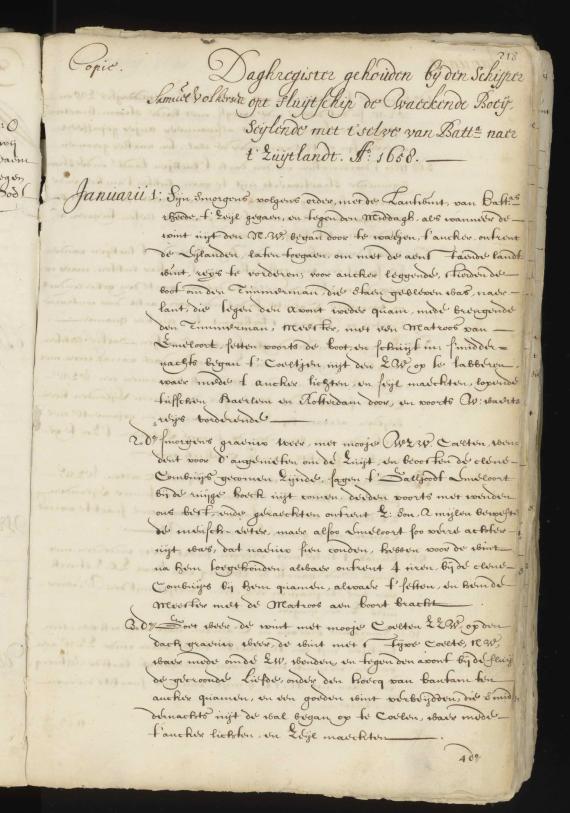 218
Copie.
Daghregister gehouden bij den Schipper
Samuel Volkersen opt Fluijtschip de Waeckende Boeij
Seijlende met t'selve van Batta. naer
t' Zuijtlandt. Ao. 1658.
Januarij 1: Sijn smorgens volgens order, met de van Battas
rheede, t' Zeijl gegaen, en tegen den Middagh, als wanneer de
wint uijt den N.W. began door te waeijen, t'ancker ontrent
de Eijlanden, laten toegaen, om met de aent landt
wint, reijs te vorderen; voor ancker leggende,
boot om den Timmerman, die gebleven was, naer
lant, die tegen den avont weder quam, mede brengende
den Timmerman, Meester, met een Matroos van
Emeloort, setten voorts de boot, en schuijt in;
nachts began t' Coeltjen uijt den ZW. op te labberen
waer mede t' ancker lichten, en seijl maeckten, lopende
tusschen Haerlem en Rotterdam door, en voorts W: waerts
reijs vorderende
2. do. smorgens graeuw weer, met moije Coelten,
dent voor d'angenieten om de Zuijt, en de clene
Combuijs gecomen Zijnde, sagen t' Galjoodt Emeloort
bij de ruijge hoeck uijt comen, deeden voorts met wenden
ons best, ende geraeckten ontrent 2 mijlen bewesten
de menscheneeter, maer alsoo Emeloort soo verre achter
uijt was, dat naeuw sien conden, hebben voor de wint
na hem toegehouden, alwaer ontrent 4 uren, bij de cleene
Combuijs bij hem quamen, alwaer t'setten, en hem de
Meester met de Matroos aen boort bracht
3. do. Goet weer, de wint met moije Coelten ZZW, op den
dach graeuw weer, de wint met Coelte, N.W,
waer mede om de ZW, wenden, en tegen den avont bij de fluijt
de gecroonde Liefde, onder den hoecq van bantam ten
ancker quamen, en een goeden wint verbeijdden, die
dernachts uijt de wal began op te Coelen, waer mede
t'ancker lichten, en Zeijl maeckten.
4 do.